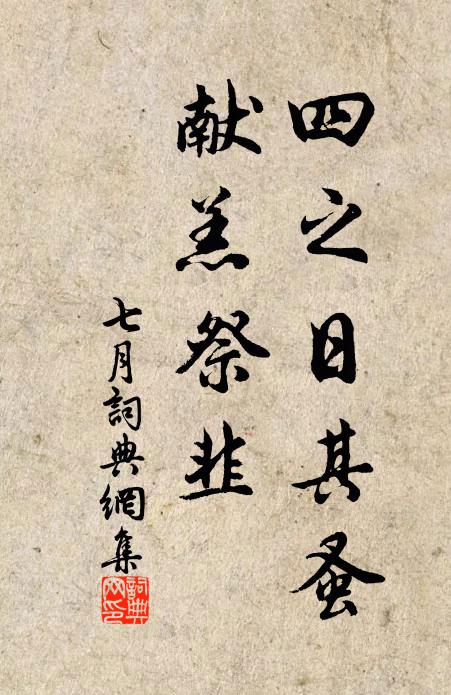 四之日其蚤
献羔祭韭
七月詞典網集
詞典网印